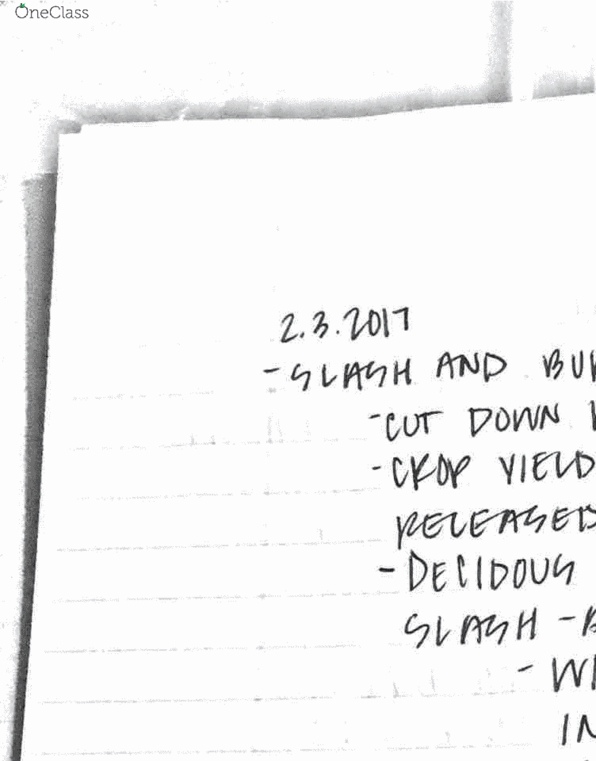 OneClass
2.3.2017
- SLASH AND
- CUT DOWN
- CROP YIELD
RELEASED
- DECIDOUS
SLASH -
-
IN